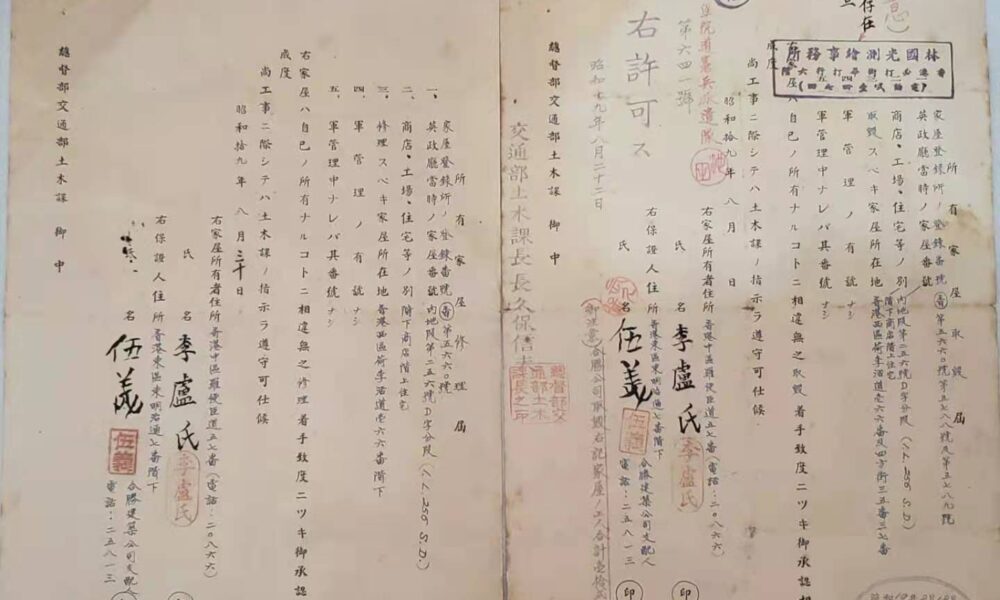 存在
林國光測繪事務所
香港必打街必打行六階
(電話貳壹四七四)
所有家屋取毀届
家屋登錄所ノ登錄番號 香 第五六六〇號第五七八八號及第五七八九號
英政廳當時ノ家屋番號 內地段第二五六號D字分段 (I.L. 256 S.D.)
商店、工場、住宅等ノ別 階下商店階上住宅
取毀スベキ家屋所在地 香港西區荷李活道壹六六番及四方街三五番三七番
軍管理ノ有 ナシ
軍管理中ナレバ其番號 ナシ
右家屋ハ自己ノ所有ナルコトニ相違無之取毀着手致度ニツキ御承認
成度
尚工事ニ際シテハ土木課ノ指示ヲ遵守可仕候
昭和拾九年 八月 日
右家屋所有者住所 香港中區 道五七番 (電話:二〇八六六)
氏名 李盧氏 李盧氏 印
右保證人住所 香港東區東明治通七番階下
合勝建築公司支配人
電話:二五八一三
氏名 伍義 伍義 印
憲兵派遣隊
第六四一號
右許可ス
昭和十九年八月二十二日
交通部土木課長 長久保信夫
總督部交通部土木課長之印
合勝公司取毀右記家屋ノ工人合計壹拾
總督部交通部土木課 御中
所有家屋修理届
一、家屋登錄所ノ登錄番號 香 第五六六〇號
二、英政廳當時ノ家屋番號 內地段第二五六號D字分段 (I.L. 256 S.D.)
商店、工場、住宅等ノ別 階下商店階上住宅
三、修理スベキ家屋所在地 香港西區荷李活道壹六六番階下
四、軍管理ノ有 ナシ
五、軍管理中ナレバ其番號 ナシ
右家屋ハ自己ノ所有ナルコトニ相違無之修理着手致度ニツキ御承認
成度
尚工事ニ際シテハ土木課ノ指示ヲ遵守可仕候
昭和拾九年 八月三十日
右家屋所有者住所 香港中區 道五七番 (電話:二〇八六六)
氏名 李盧氏 李盧氏
右保證人住所 香港東區東明治通七番階下
合勝建築公司支配人
電話:二五八一三
氏名 伍義 伍義
總督部交通部土木課 御中